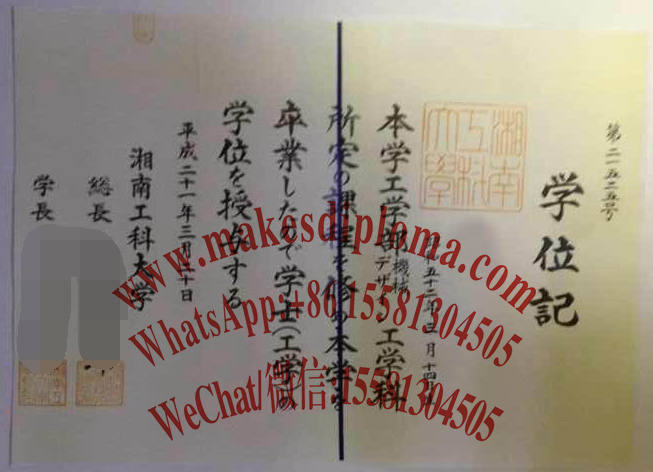 第二一五二五号
学位記
湘南
工科
大學
昭和五十三年三月十四日生
本学工学部機械デザイン工学科
所定の課程を修め本学を
卒業したので学士(工学)の
学位を授与する
平成二十一年三月二十日
湘南工科大学
総長
学長
www.makesdiplama.com
WhatsApp:+86 15581304505
WeChat/微信:15581304505